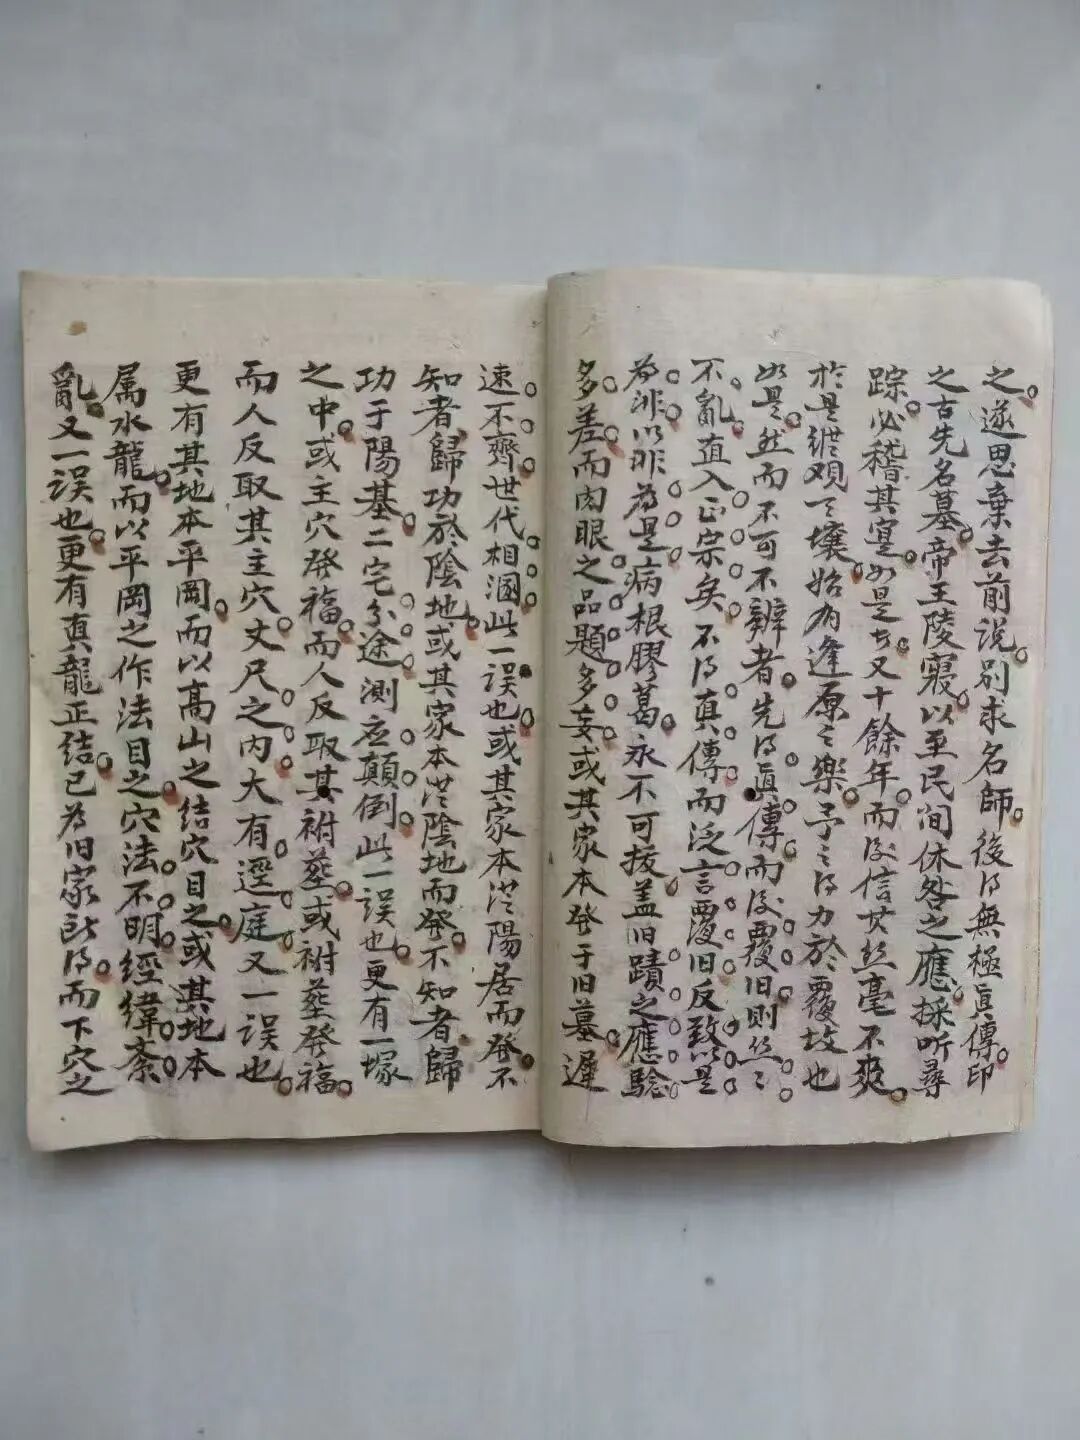 之遂思棄去前說別求名師後得無極眞傳印
之古先名墓帝王陵寢以至民间休咎之應採听尋
踪必稽其寔如是者又十餘年而後信其丝毫不爽
於是縱观天壤始有逢原之樂予之得力於覆坟也
如是然而不可不辨者先得眞傳而後覆旧則丝丝
不亂直入正宗矣不得真傳而泛言覆旧反致以是
為非以非為是病根膠葛永不可拔盖旧蹟之應騐
多差而肉眼之品題多妄或其家本發于旧墓遲
速不齊世代相溷此一误也或其家本從陽居而發不
知者歸功於陰地或其家本從陰地而發不知者歸
功于陽基二宅分途測应顛倒此一误也更有一塚
之中或主穴發福而人反取其祔塟或祔塟發福
而人反取其主穴丈尺之内大有逕庭又一误也
更有其地本平岡而以高山之结穴目之或其地本
属水龍而以平岡之作法目之穴法不明經緯紊
亂又一误也更有真龍正结已為旧家所得而下穴之